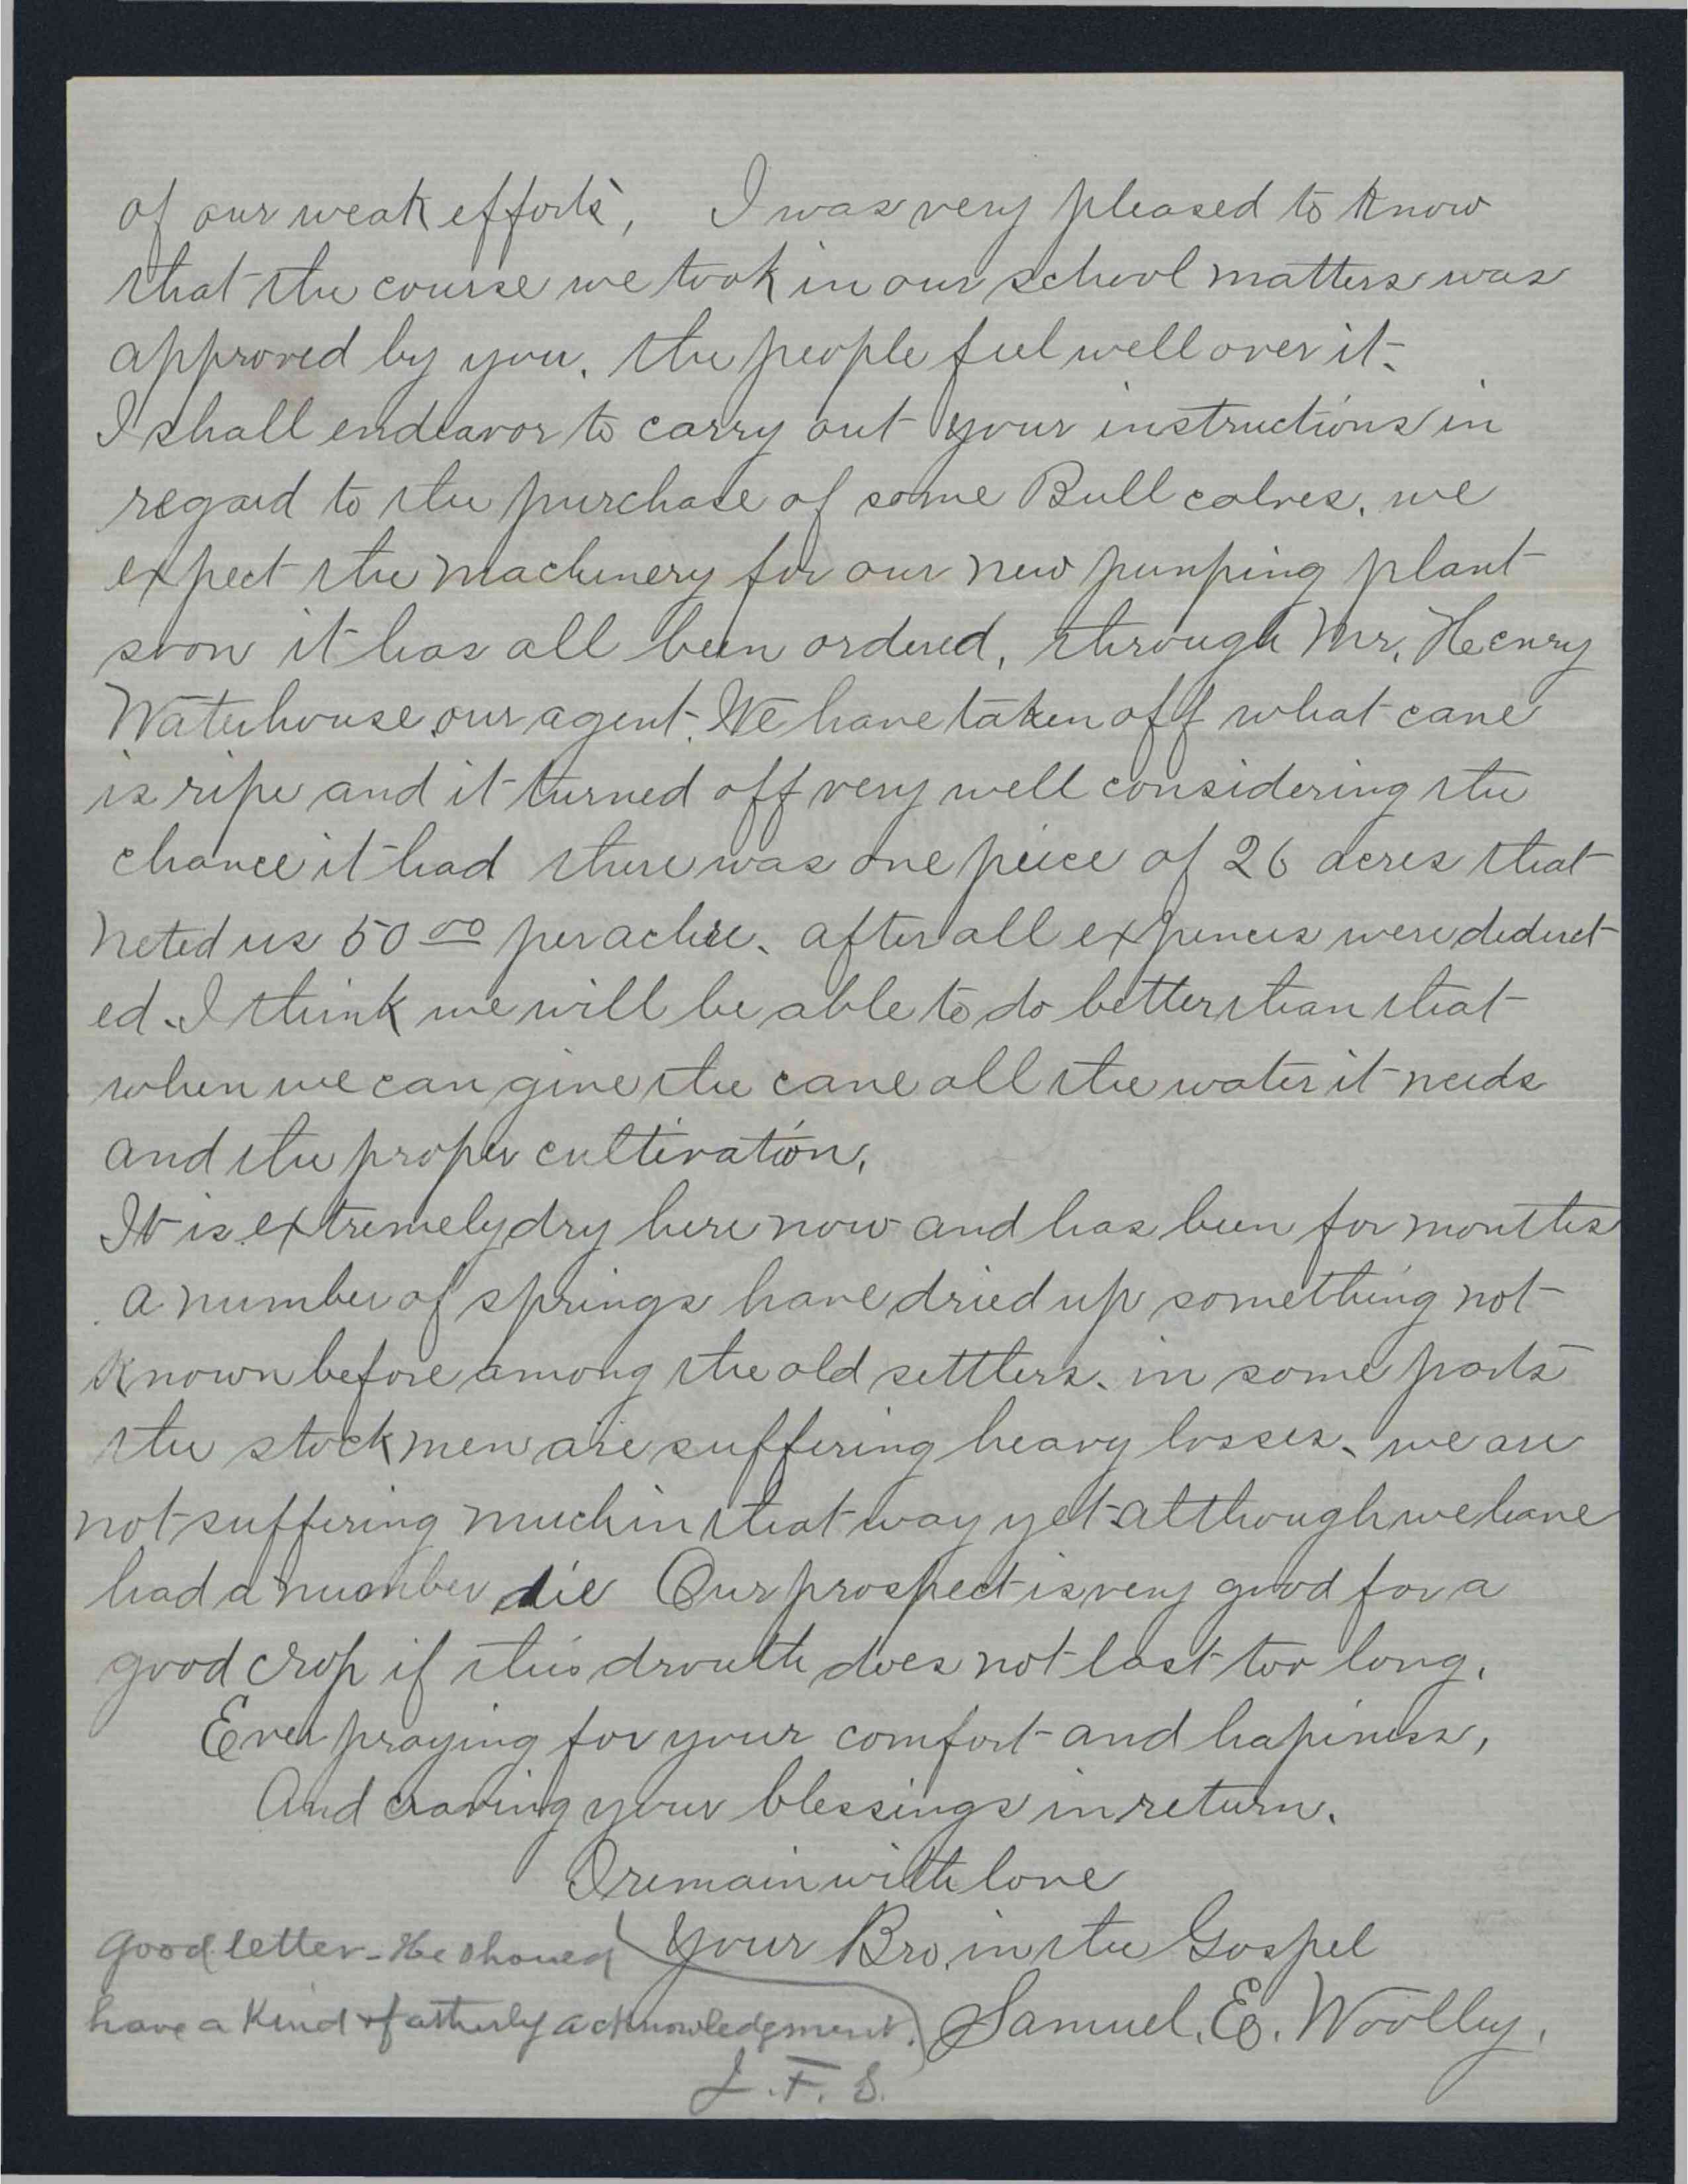 of our weak efforts, I was very pleased to know
that the course we took in our school matters was
approved by you, the people feel well over it.
I shall endeavor to carry out your instructions in
regard to the purchase of some Bull calves, we
expect the machinery for our new pumping plant
soon it has all been ordered, through Mr. Henry
Waterhouse our agent. We have taken off what cane
is ripe and it turned off very well considering the
chance it had there was one peice of 26 acres that
neted us 50 00 per achre. after all expences were deduct
ed. I think we will be able to do better than that
when we can give the cane all the water it needs
and the proper cultivation.
It is extremely dry here now and has been for months
a number of springs have dried up something not
known before among the old settlers. in some parts
the stock men are suffering heavy losses. we are
not suffering much in that way yet although we have
had a number die Our prospect is very good for a
good crop if this drouth does not last too long.
Ever praying for your comfort and hapiness,
And craving your blessings in return.
I remain with love
Your Bro. in the Gospel
Samuel, E. Woolley.
Good letter - He should
have a kind & fatherly acknowledgment.
J. F. S.